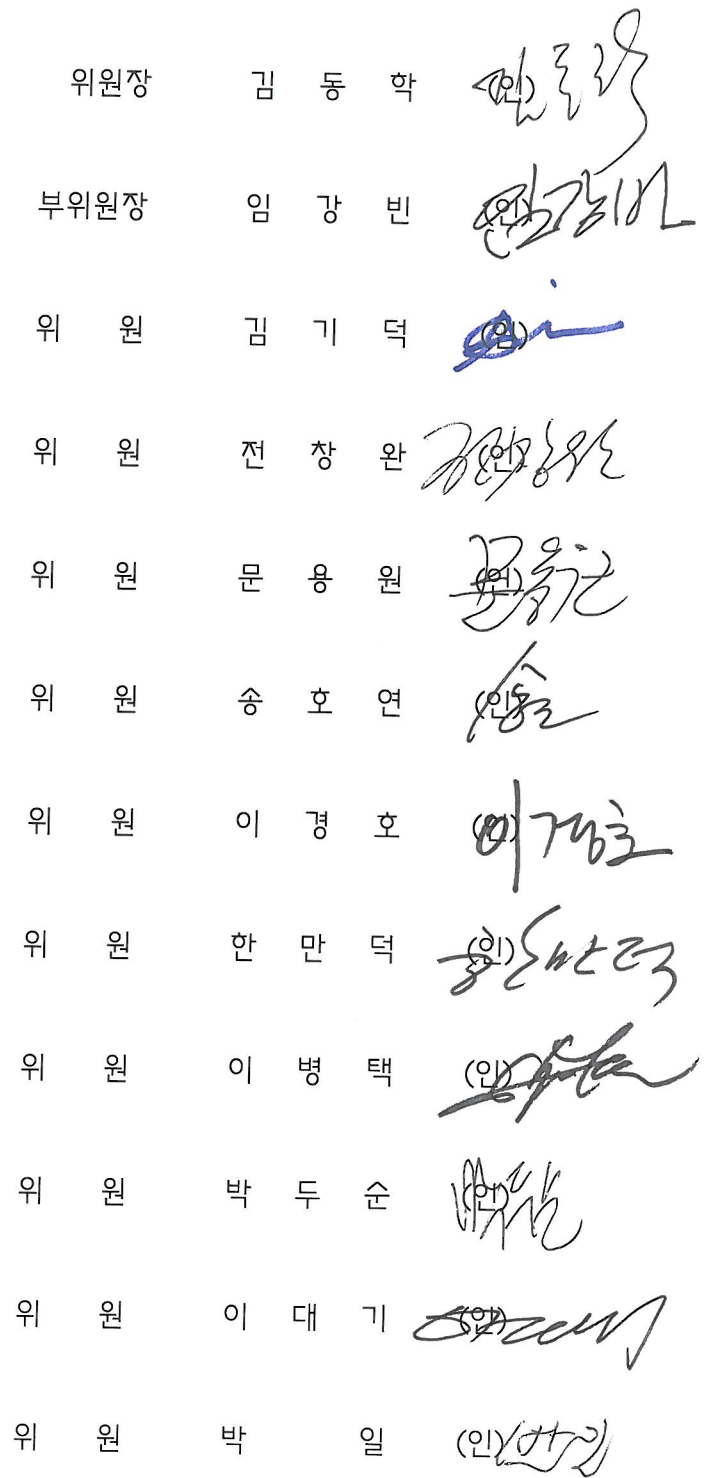 위원장 김 동 학 (인)
부위원장 임 강 빈 (인)
위 원 김 기 덕 (인)
위 원 전 창 완 (인)
위 원 문 용 원 (인)
위 원 송 호 연 (인)
위 원 이 경 호 (인) 이경호
위 원 한 만 덕 (인) 한만덕
위 원 이 병 택 (인)
위 원 박 두 순 (인)
위 원 이 대 기 (인)
위 원 박 일 (인)